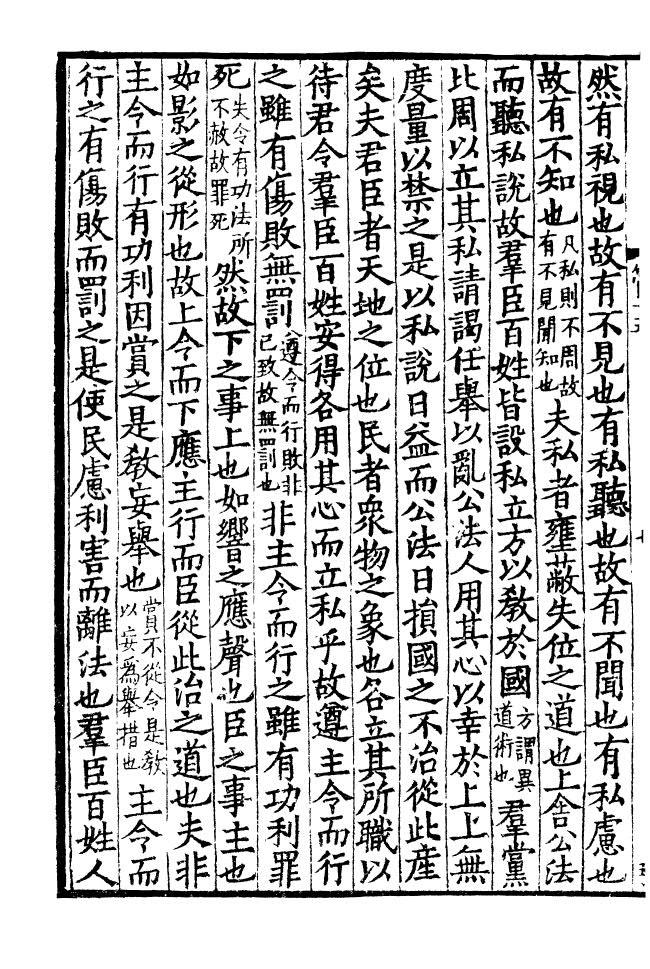 然有私視也故有不見也有私聽也故有不聞也有私慮也
故有不知也凡私則不周故有不見聞知也夫私者壅蔽失位之道也上舍公法
而聽私說故羣臣百姓皆設私立方以教於國方謂異道術也羣黨
比周以立其私請謁任舉以亂公法人用其心以幸於上上無
度量以禁之是以私說日益而公法日損國之不治從此産
矣夫君臣者天地之位也民者衆物之象也各立其所職以
待君令羣臣百姓安得各用其心而立私乎故遵主令而行
之雖有傷敗無罰遵令而行敗非已致故無罰也非主令而行之雖有功利罪
死失令有功法所不赦故罪死然故下之事上也如響之應聲也臣之事主也
如影之從形也故上令而下應主行而臣從此治之道也夫非
主令而行有功利因賞之是教妄舉也賞不從令是教以妄爲舉措也主令而
行之有傷敗而罰之是使民慮利害而離法也羣臣百姓人